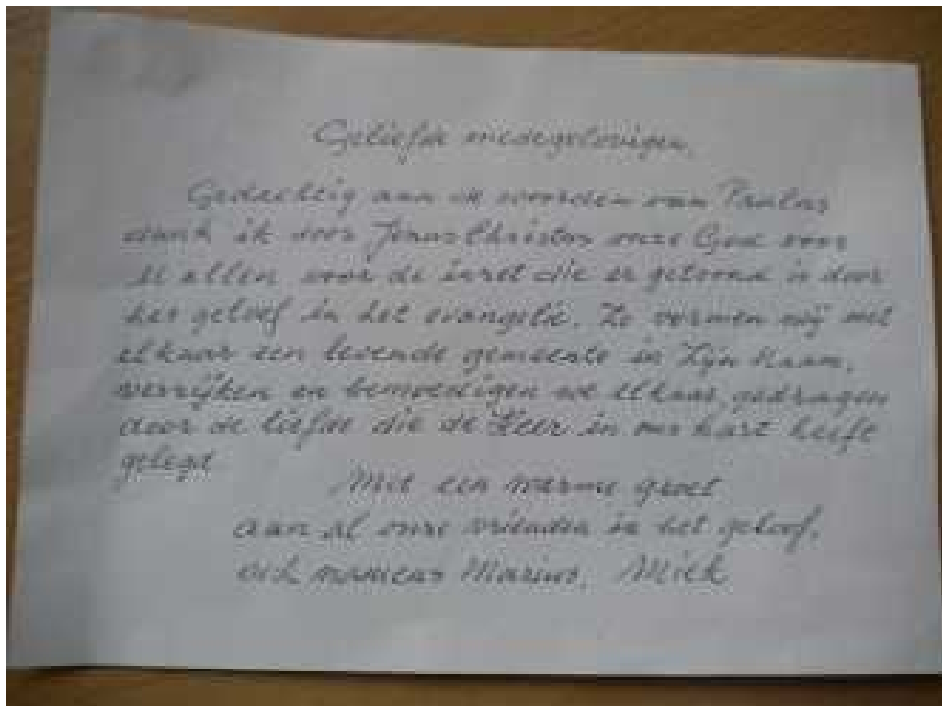 Geliefde medegelovigen,
Gedachtig aan de woorden van Paulus
dank ik door Jezus Christus onze God voor
u allen voor de inzet die er getoond is door
het geloof in het evangelie. Zo vormen wij met
elkaar een levende gemeente in Zijn Naam,
verrijken en bemoedigen we elkaar, gedragen
door de liefde die de Heer in ons hart heeft
gelegd
Met een warme groet
aan al onze vrienden in het geloof,
ook namens Marius, Miek